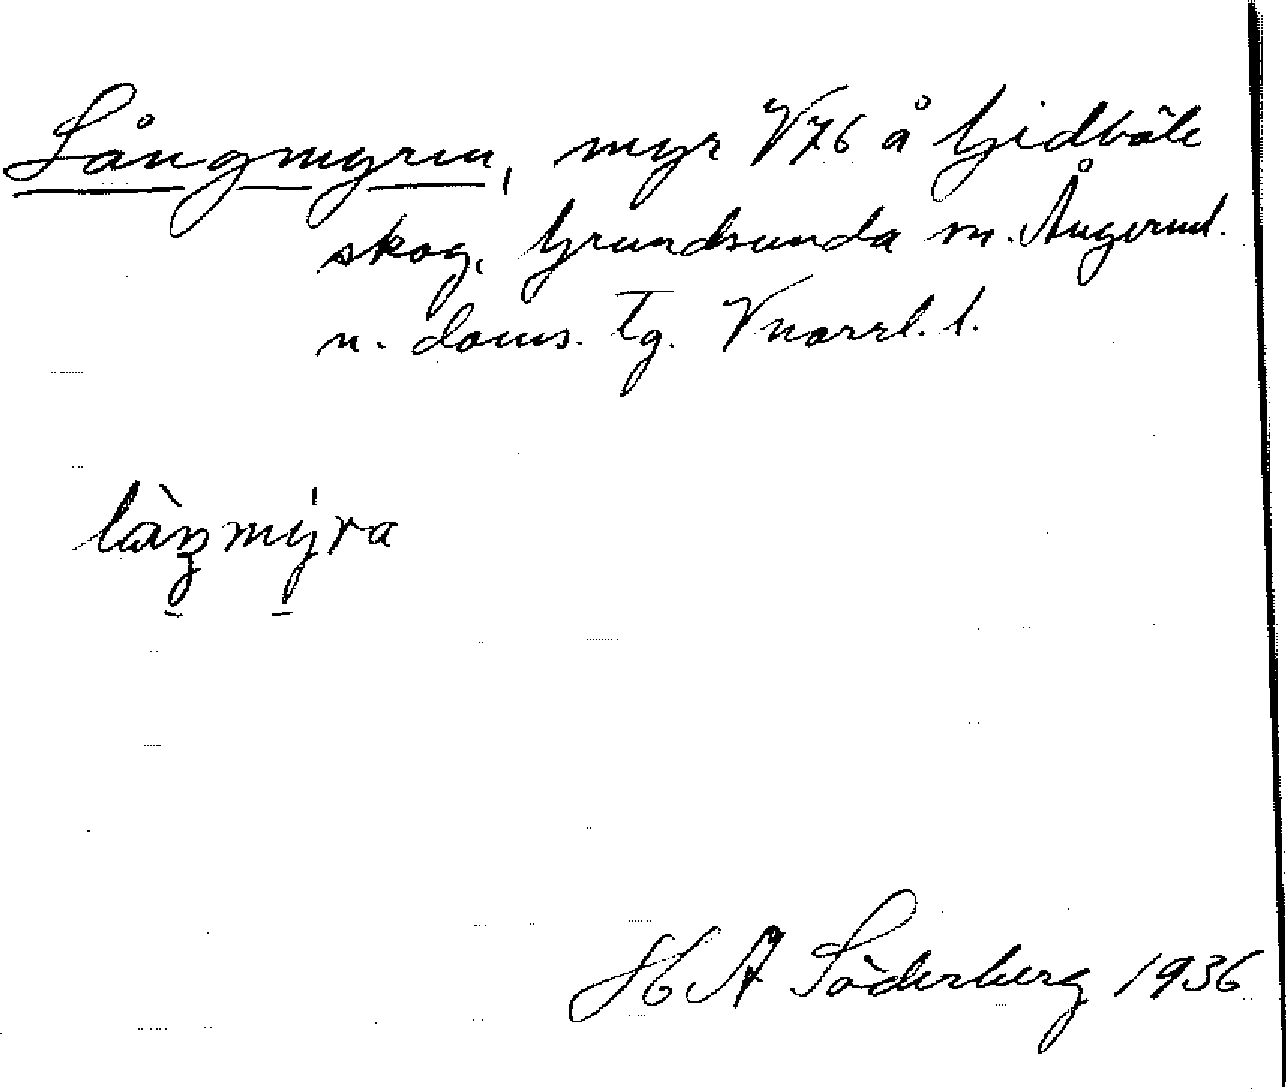 Långmyren, myr V76 å Gidböle
skog, Grundsunda sn. Ångerml.
n. doms. Tg. Vnorrl. l.
làŋmýra
H Å Söderberg 1936